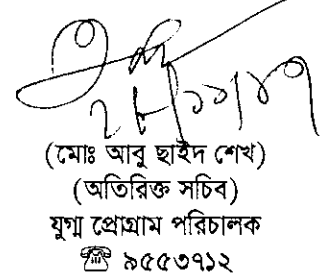 (মোঃ আবু ছাইদ শেখ)
(অতিরিক্ত সচিব)
যুগ্ম প্রোগ্রাম পরিচালক
☎ ৯৫৫৩৭১২